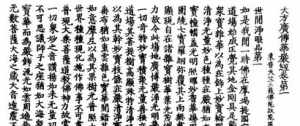 大方廣佛華嚴經卷第一
世間淨眼品第一
東晉天竺三藏佛馱跋陀羅
如是我聞一時佛在摩竭提國寂
道場始成正覺其地金剛具足嚴
眾寶雜華以為莊飾上妙寶輪圓
清淨無量妙色種種莊嚴猶如大
寶幢幡蓋光明照耀妙香華鬘周
圍遶七寶羅網彌覆其上雨無盡
顯現自在諸雜寶樹華葉光茂佛
力故令此場地廣博嚴淨光明普
一切奇特妙寶積聚無量善根莊
道場其菩提樹高顯殊特清淨琉
以為其幹妙寶枝條莊嚴清淨寶
垂布猶如重雲雜色寶華間錯其
如意摩尼以為其果樹光普照十
世界種種現化施作佛事不可盡
普現大乘菩薩道教佛神力故常
一切眾妙之音讚揚如來無量功
不可思議師子之座猶如大海眾
寶華而為嚴飾流光如雲周遍普
無數菩薩大海之藏大音遠震不